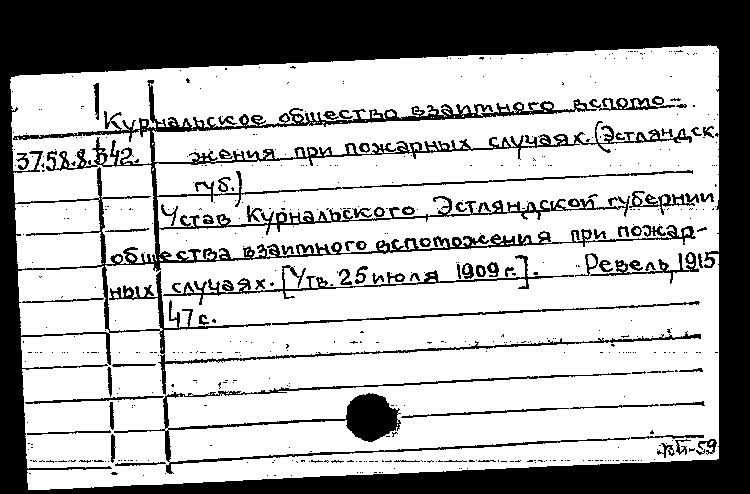 Курнальское общество взаимного вспомо-
37.58.8.342. жения при пожарных случаях. (Эстляндск.
губ.)
Устав Курнальского, Эстляндской губернии,
общества взаимоного вспоможения при пожар-
ных случаях. [Утв. 25 июля 1909 г.]. Ревель, 1915
47 с.